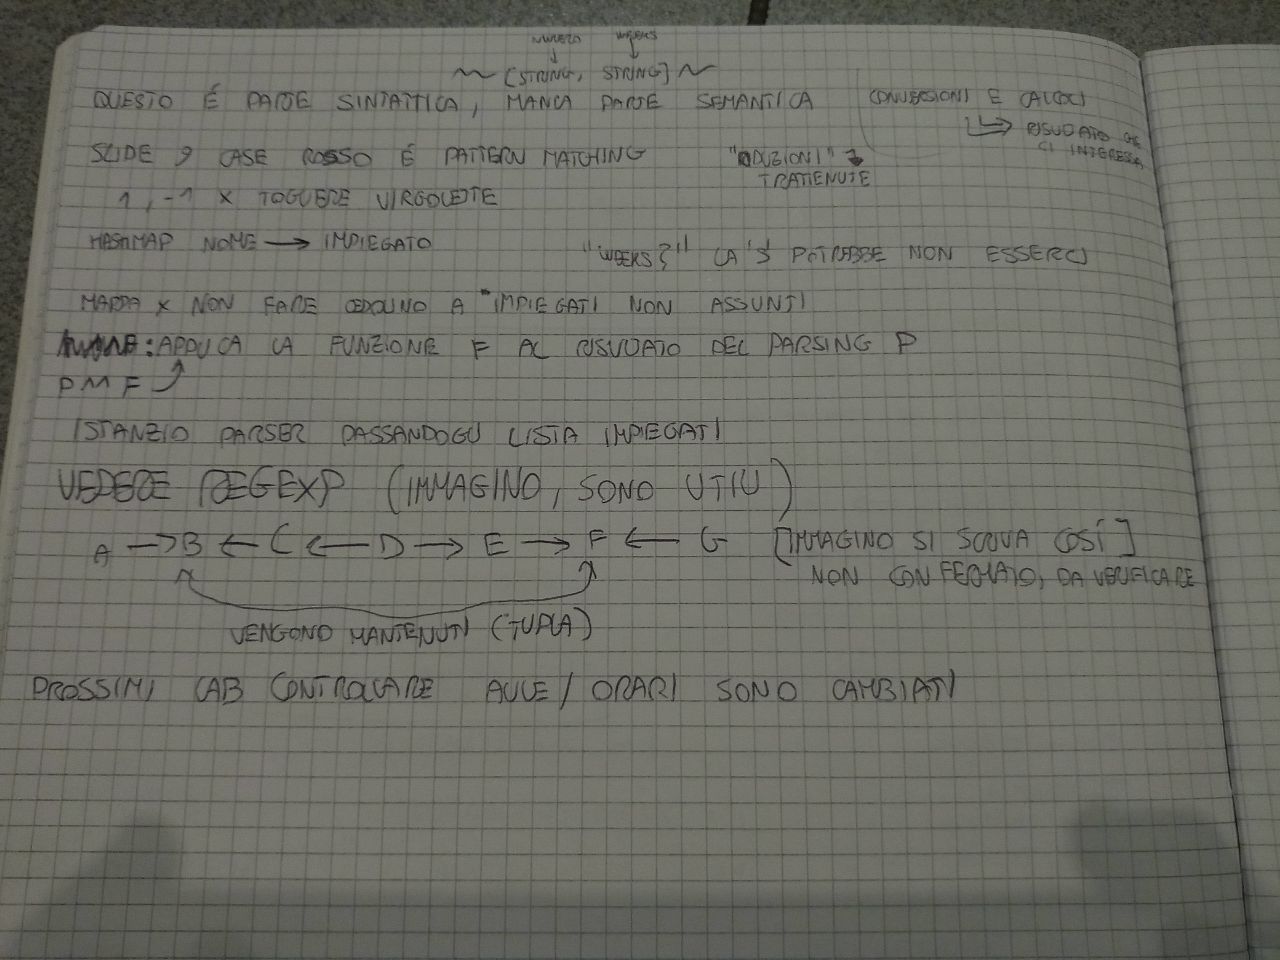 NUMERO WEEKS
~ [STRING, STRING] ~
QUESTO É PARTE SINTATTICA, MANCA PARTE SEMANTICA CONVERSIONI E CALCOLI
RISULTATO CHE
CI INTERESSA
SLIDE 9 CASE ROSSO É PATTERN MATCHING "DUZIONI"
TRATTENUTE
1, -1 X TOGLIERE VIRGOLETTE
HASHMAP NOME → IMPIEGATO
"WEEKS?" LA 'S' POTREBBE NON ESSERCI
MAPPA X NON FARE CEDOLINO A IMPIEGATI NON ASSUNTI
: APPLICA LA FUNZIONE F AL RISULTATO DEL PARSING P
P M F
ISTANZIO PARSER PASSANDOGLI LISTA IMPIEGATI
VEDERE REGEXP (IMMAGINO, SONO UTILI)
A → B ← C ← D → E → F ← G [IMMAGINO SI SCRIVA COSÍ]
NON CONFERMATO, DA VERIFICARE
VENGONO MANTENUTI (TUPLA)
PROSSIMI LAB CONTROLLARE AULE / ORARI SONO CAMBIATI